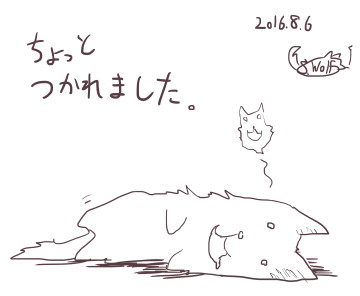 2016.8.6
Wolf
ちょっと
つかれました。